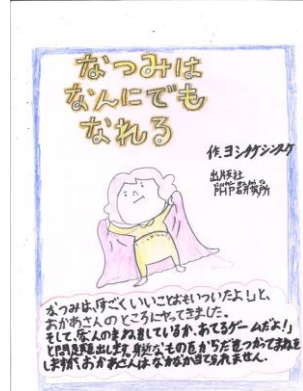 なつみは
なんにでも
なれる
作.ヨシタケシンスケ
出版社
PHP研究所
なつみは、「すごくいいことおもいついたよ！」と、
おかあさんのところにやってきました。
そして、「なんのまねをしているか、あてるゲームだよ！」
と問題を出します。身近なものをからだをつかってまねを
しますが、おかあさんはなかなか当てられません.